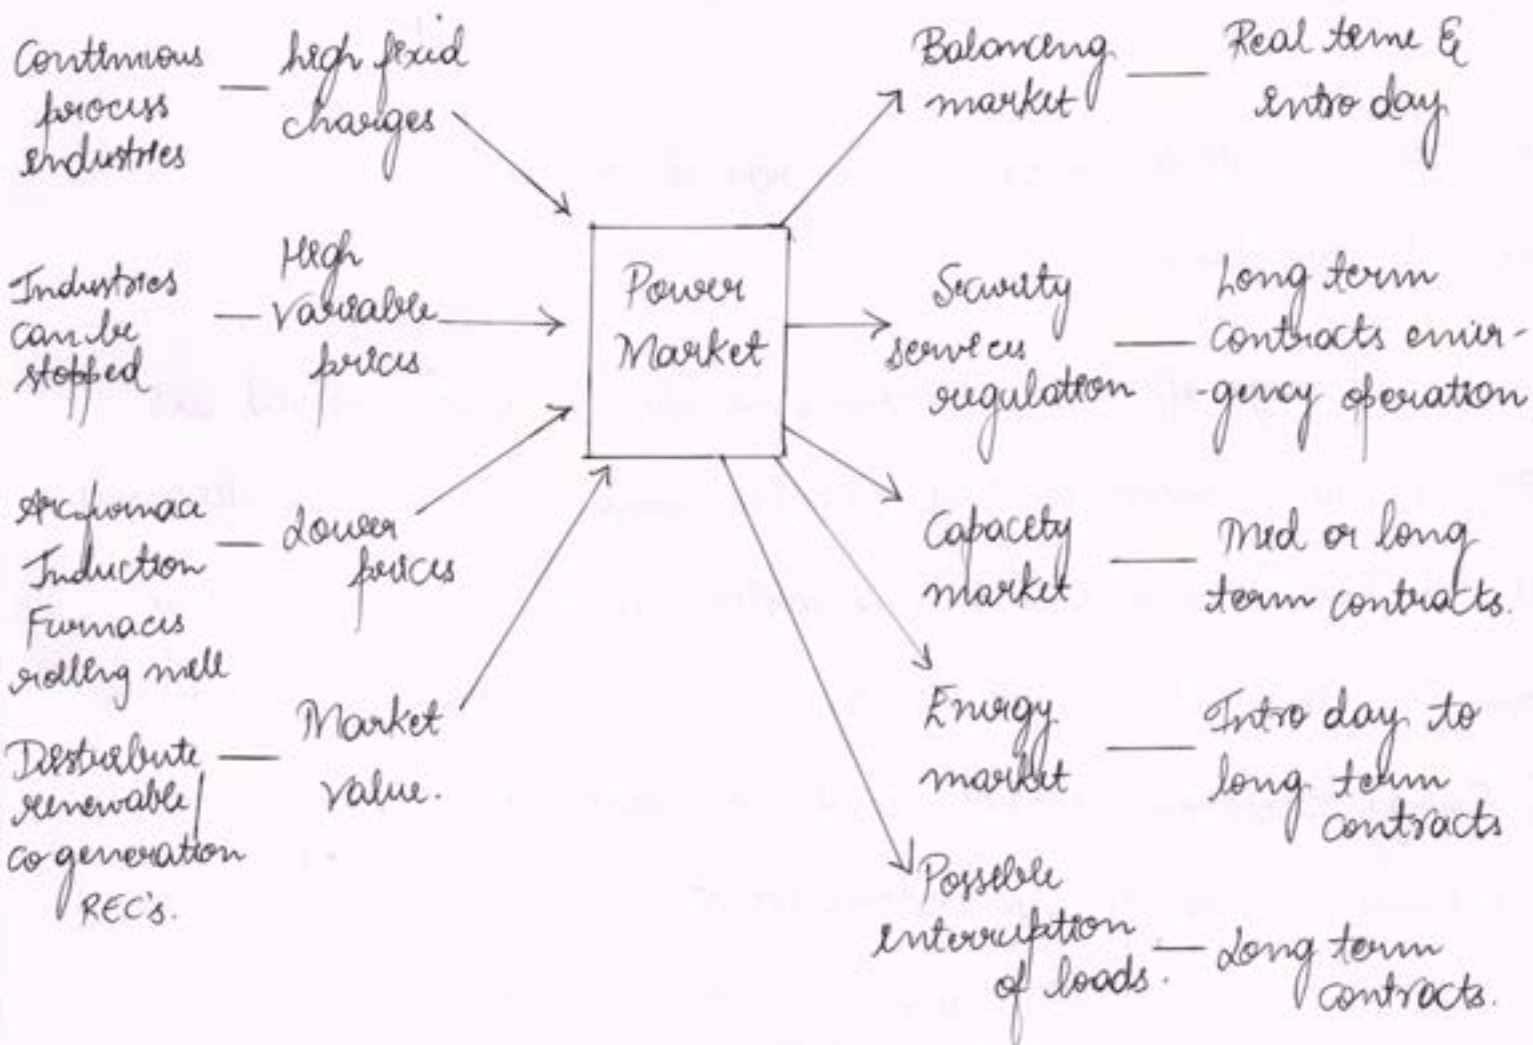 Continuous
process
industries
high fixed
charges
Industries
can be
stopped
High
Variable
prices
Arc furnace
Induction
Furnaces
rolling mill
Lower
prices
Distribute
renewable/
co generation
REC's.
Market
Value.
Power
Market
Balancing
market
Real time &
intro day
Security
services
regulation
Long term
contracts emer-
-gency operation
Capacity
market
Med or long
term contracts.
Energy
market
Intro day to
long term
contracts
Possible
interruption
of loads.
Long term
contracts.